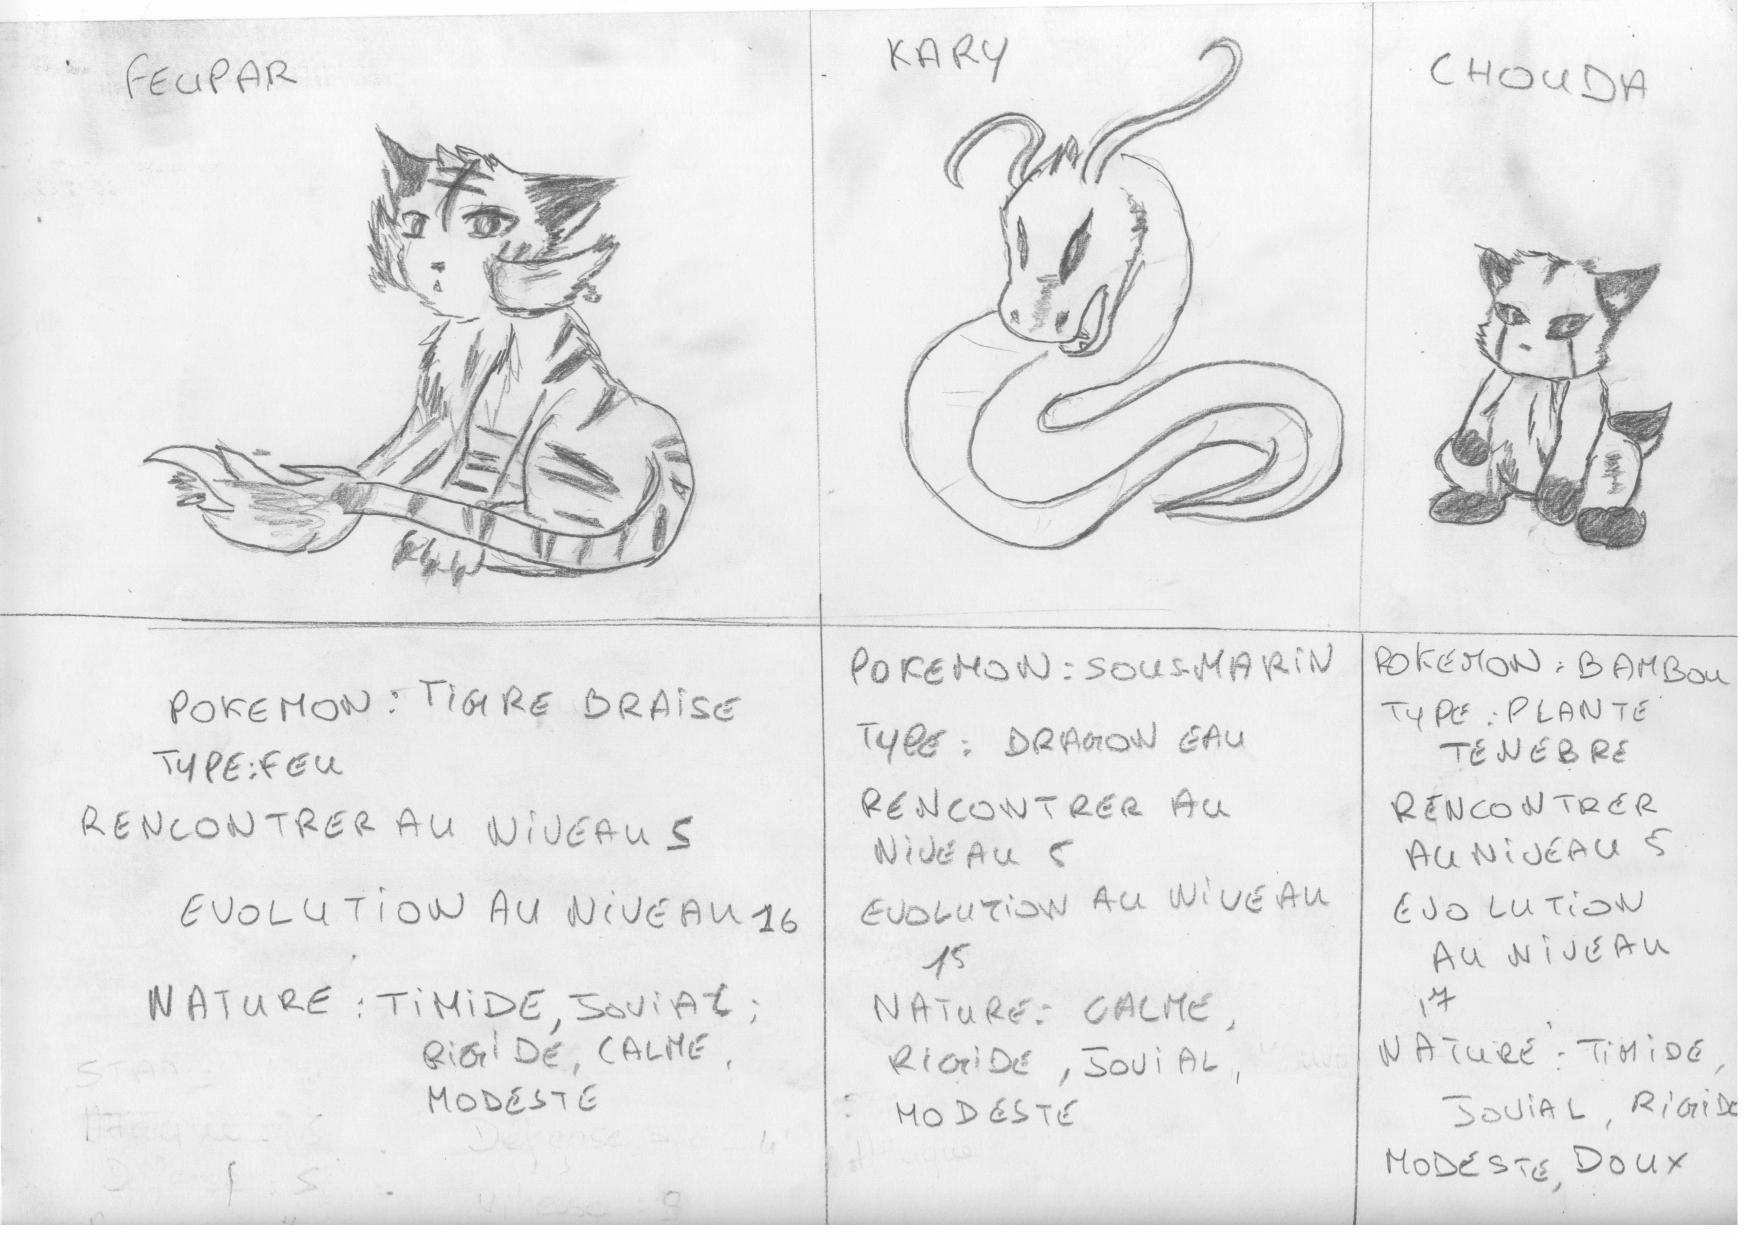 FEUPAR
POKEMON : TIGRE BRAISE
TYPE : FEU
RENCONTRER AU NIVEAU 5
EVOLUTION AU NIVEAU 16
NATURE : TIMIDE, JOVIAL,
RIGIDE, CALME,
MODESTE
KARY
POKEMON : SOUS-MARIN
TYPE : DRAGON EAU
RENCONTRER AU
NIVEAU 5
EVOLUTION AU NIVEAU
15
NATURE : CALME,
RIGIDE, JOVIAL,
MODESTE
CHOUDA
POKEMON : BAMBOU
TYPE : PLANTE
TENEBRE
RENCONTRER
AU NIVEAU 5
EVOLUTION
AU NIVEAU
17
NATURE : TIMIDE,
JOVIAL, RIGIDE
MODESTE, DOUX